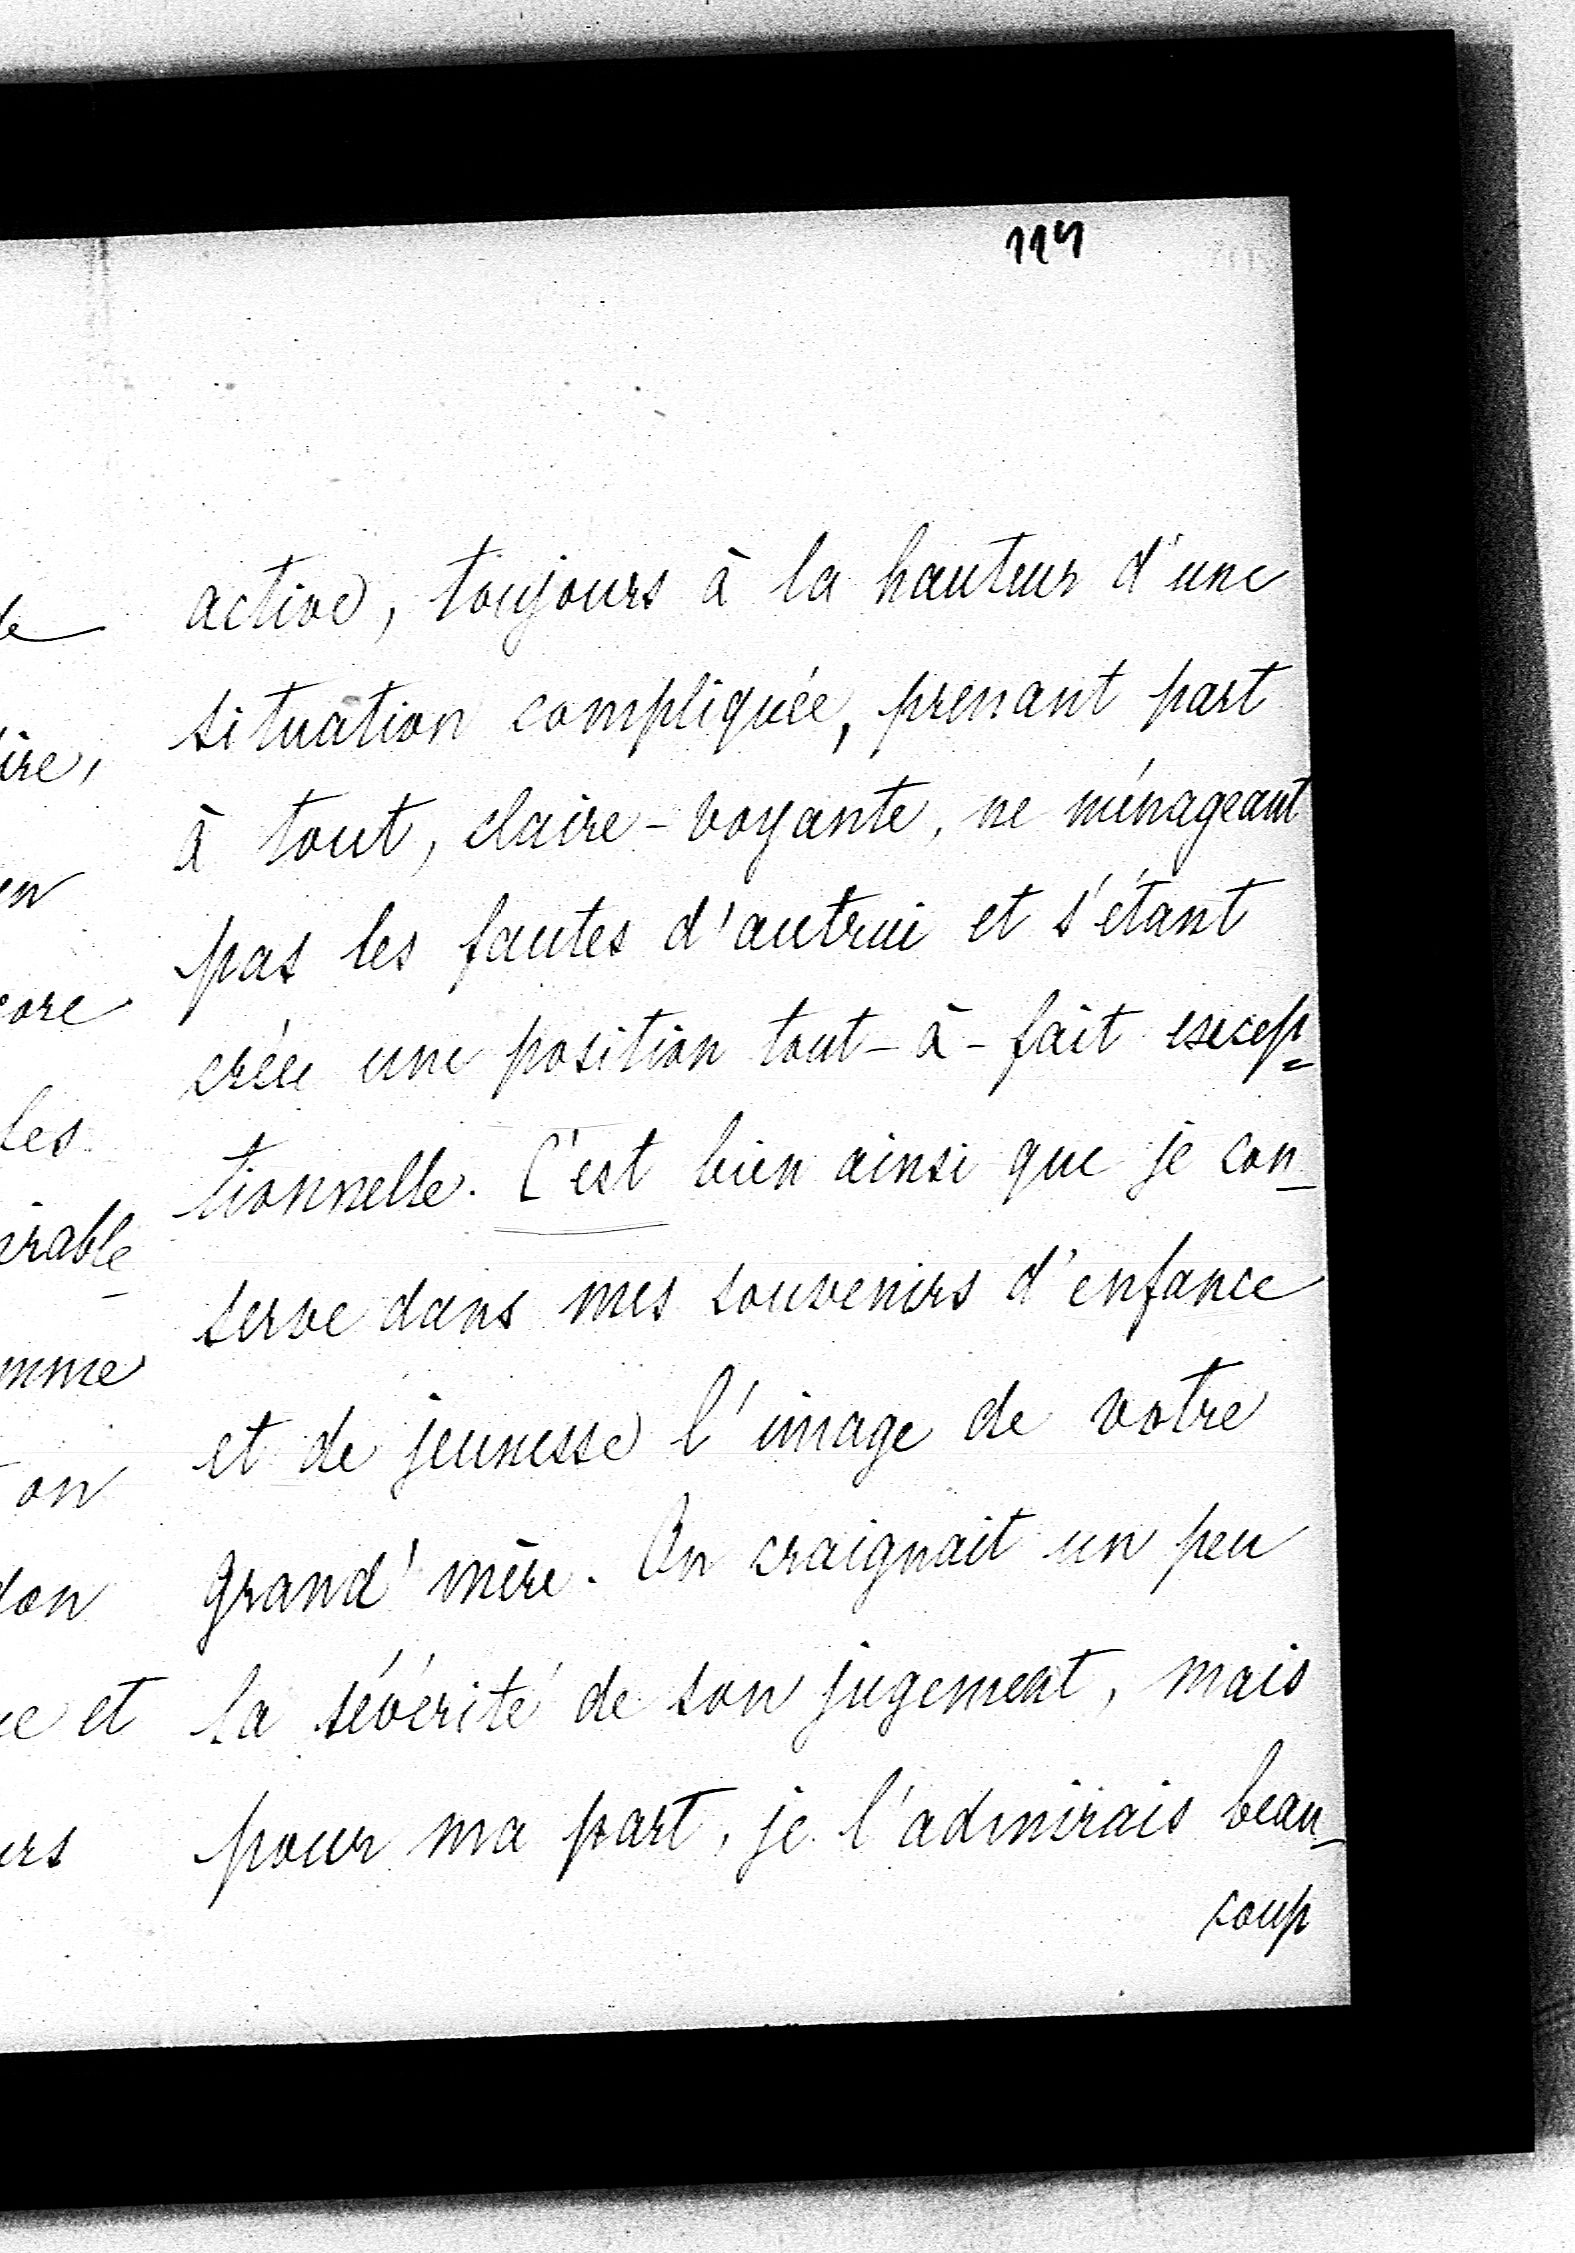 active, toujours à la hauteur d'une
situation compliquée, prenant part
à tout, claire-voyante, ne ménageant
pas les fautes d'autrui et s'étant
créée une position tout-à-fait excep=
tionnelle. C'est bien ainsi que je con-
serve dans mes souvenirs d'enfance
et de jeunesse l'image de votre
grand'mère. On craignait un peu
la sévérité de son jugement, mais
pour ma part, je l'admirais beau-
coup